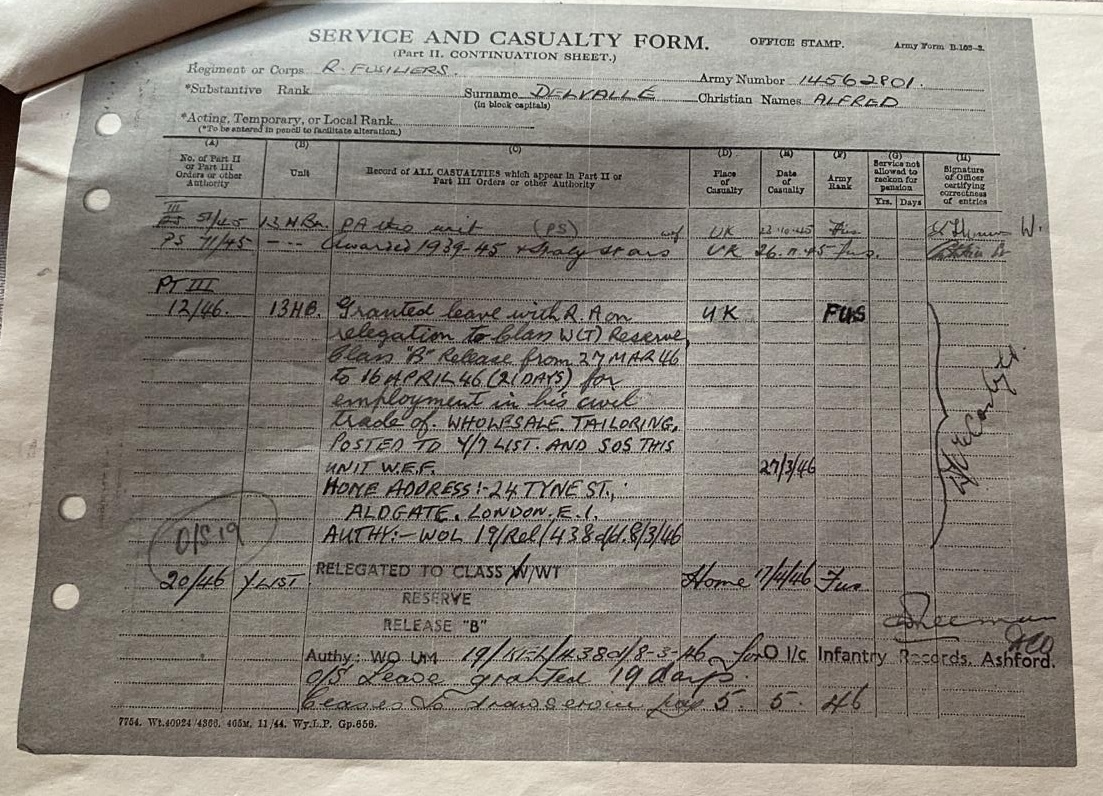 SERVICE AND CASUALTY FORM.
OFFICE STAMP.
Army Form B.103-2.
(Part II. CONTINUATION SHEET.)
Regiment or Corps R. FUSILIERS.
Army Number 14562801.
*Substantive Rank
Surname DELVALLE
Christian Names ALFRED
(in block capitals)
*Acting, Temporary, or Local Rank
(*To be entered in pencil to facilitate alteration.)
(A) (B) (C) (D) (E) (F) (G) (H)
No. of Part II or Part III Orders or other Authority
Unit
Record of ALL CASUALTIES which appear in Part II or Part III Orders or other Authority
Place of Casualty
Date of Casualty
Army Rank
Service not allowed to reckon for pension
Yrs. Days
Signature of Officer certifying correctness of entries
III
51/45 13 H Bn. unit (PS) wef UK Fus
PS 71/45 --- Awarded 1939-45 + Italy stars UK 26.11.45 Fus.
PT III
12/46. 13HB. Granted leave with R.A on UK FUS
relegation to Class W(T) Reserve,
Class "B" Release from 27 MAR 46
to 16 APRIL 46 (21 DAYS) for
employment in his civil
trade of. WHOLESALE. TAILORING.
POSTED TO Y/7 LIST. AND SOS THIS
UNIT W.E.F. 27/3/46
HOME ADDRESS:- 24 TYNE ST.,
ALDGATE. LONDON. E.1.
O/S 19
AUTHY:- WOL 19/Rel/438 d/d. 8/3/46
20/46 Y LIST RELEGATED TO CLASS W/WT Home 17/4/46 Fus
RESERVE
RELEASE "B"
Authy: WO UM 19/REL/438 d/8-3-46 for O i/c Infantry Records, Ashford.
O/S Leave granted 19 days.
Ceases to draw pay 5. 5. 46
7754. Wt.40924/4366. 405m. 11/44. Wy.L.P. Gp.656.